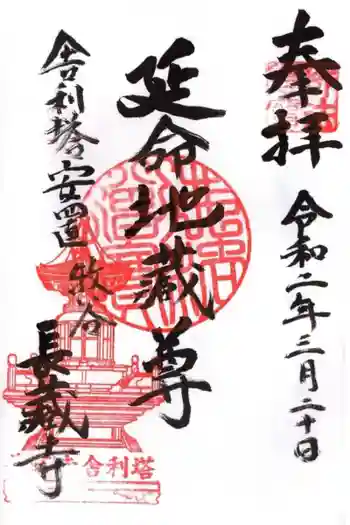 奉拝
令和二年三月二十日
延命地蔵尊
舎利塔安置 牧谷
長蔵寺
塔利舎